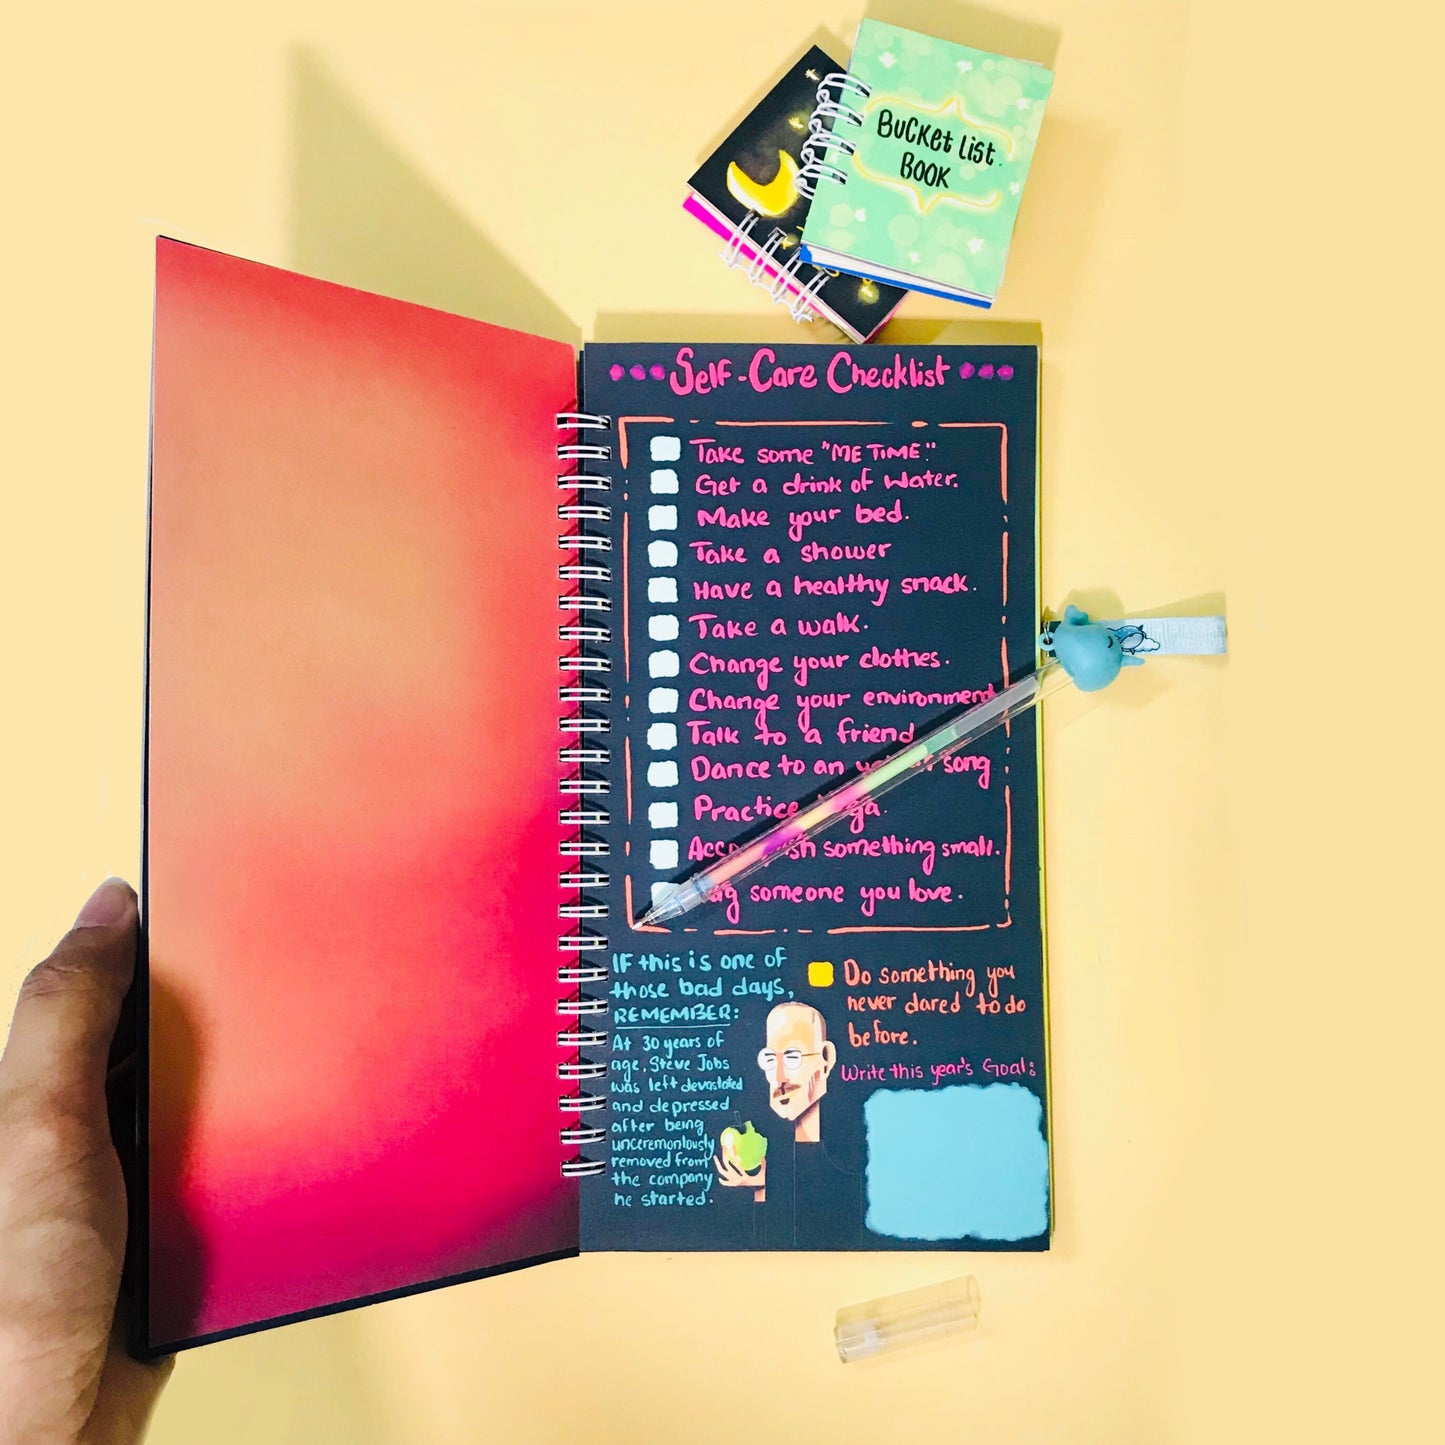 BUCKET LIST
BOOK
Self-Care Checklist
Take some "ME TIME."
Get a drink of water.
Make your bed.
Take a shower
Have a healthy snack.
Take a walk.
Change your clothes.
Change your environment
Talk to a friend
Dance to an song
Practice
something small.
someone you love.
IF this is one of
those bad days,
REMEMBER:
At 30 years of
age, Steve Jobs
was left devastated
and depressed
after being
unceremoniously
removed from
the company
he started.
Do something you
never dared to do
before.
Write this year's Goal: